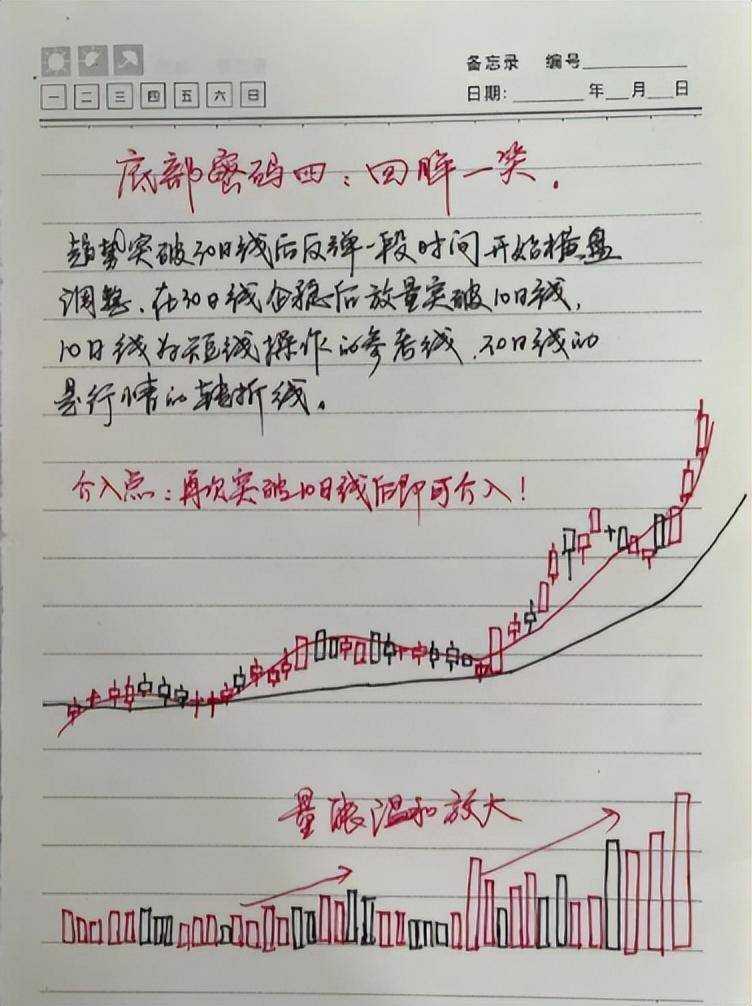 备忘录 编号
一 二 三 四 五 六 日
日期: 年 月 日
底部密码四：回眸一笑.
趋势突破30日线后反弹一段时间开始横盘
调整、在30日线企稳后放量突破10日线,
10日线为短线操作的参考线、30日线的
是行情的转折线。
介入点：再次突破10日线后即可介入！
量能温和放大